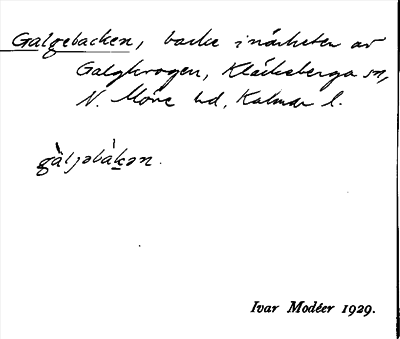 Galgebacken, backe i närheten av
Galgkrogen, Kläckeberga sn,
N. Möre hd, Kalmar l.
gàljəbàkən.
Ivar Modéer 1929.